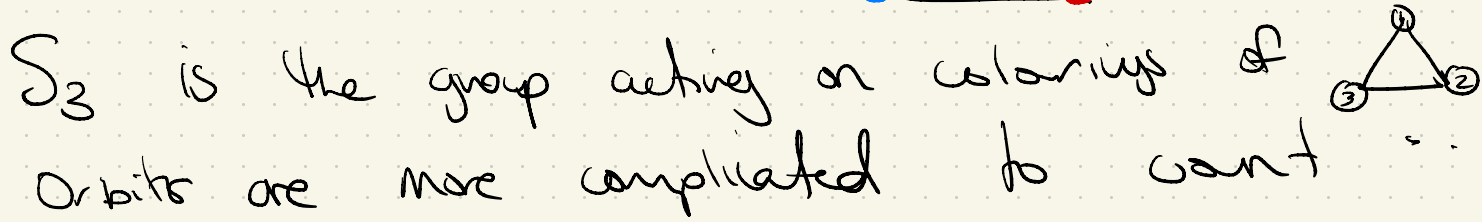 S₃ is the group acting on colorings of 1 3 2
Orbits are more complicated to count